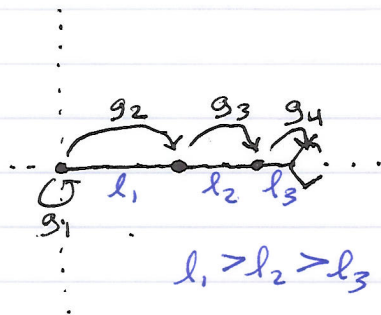 g2 g3 g4
l1 l2 l3
g1
l1 > l2 > l3